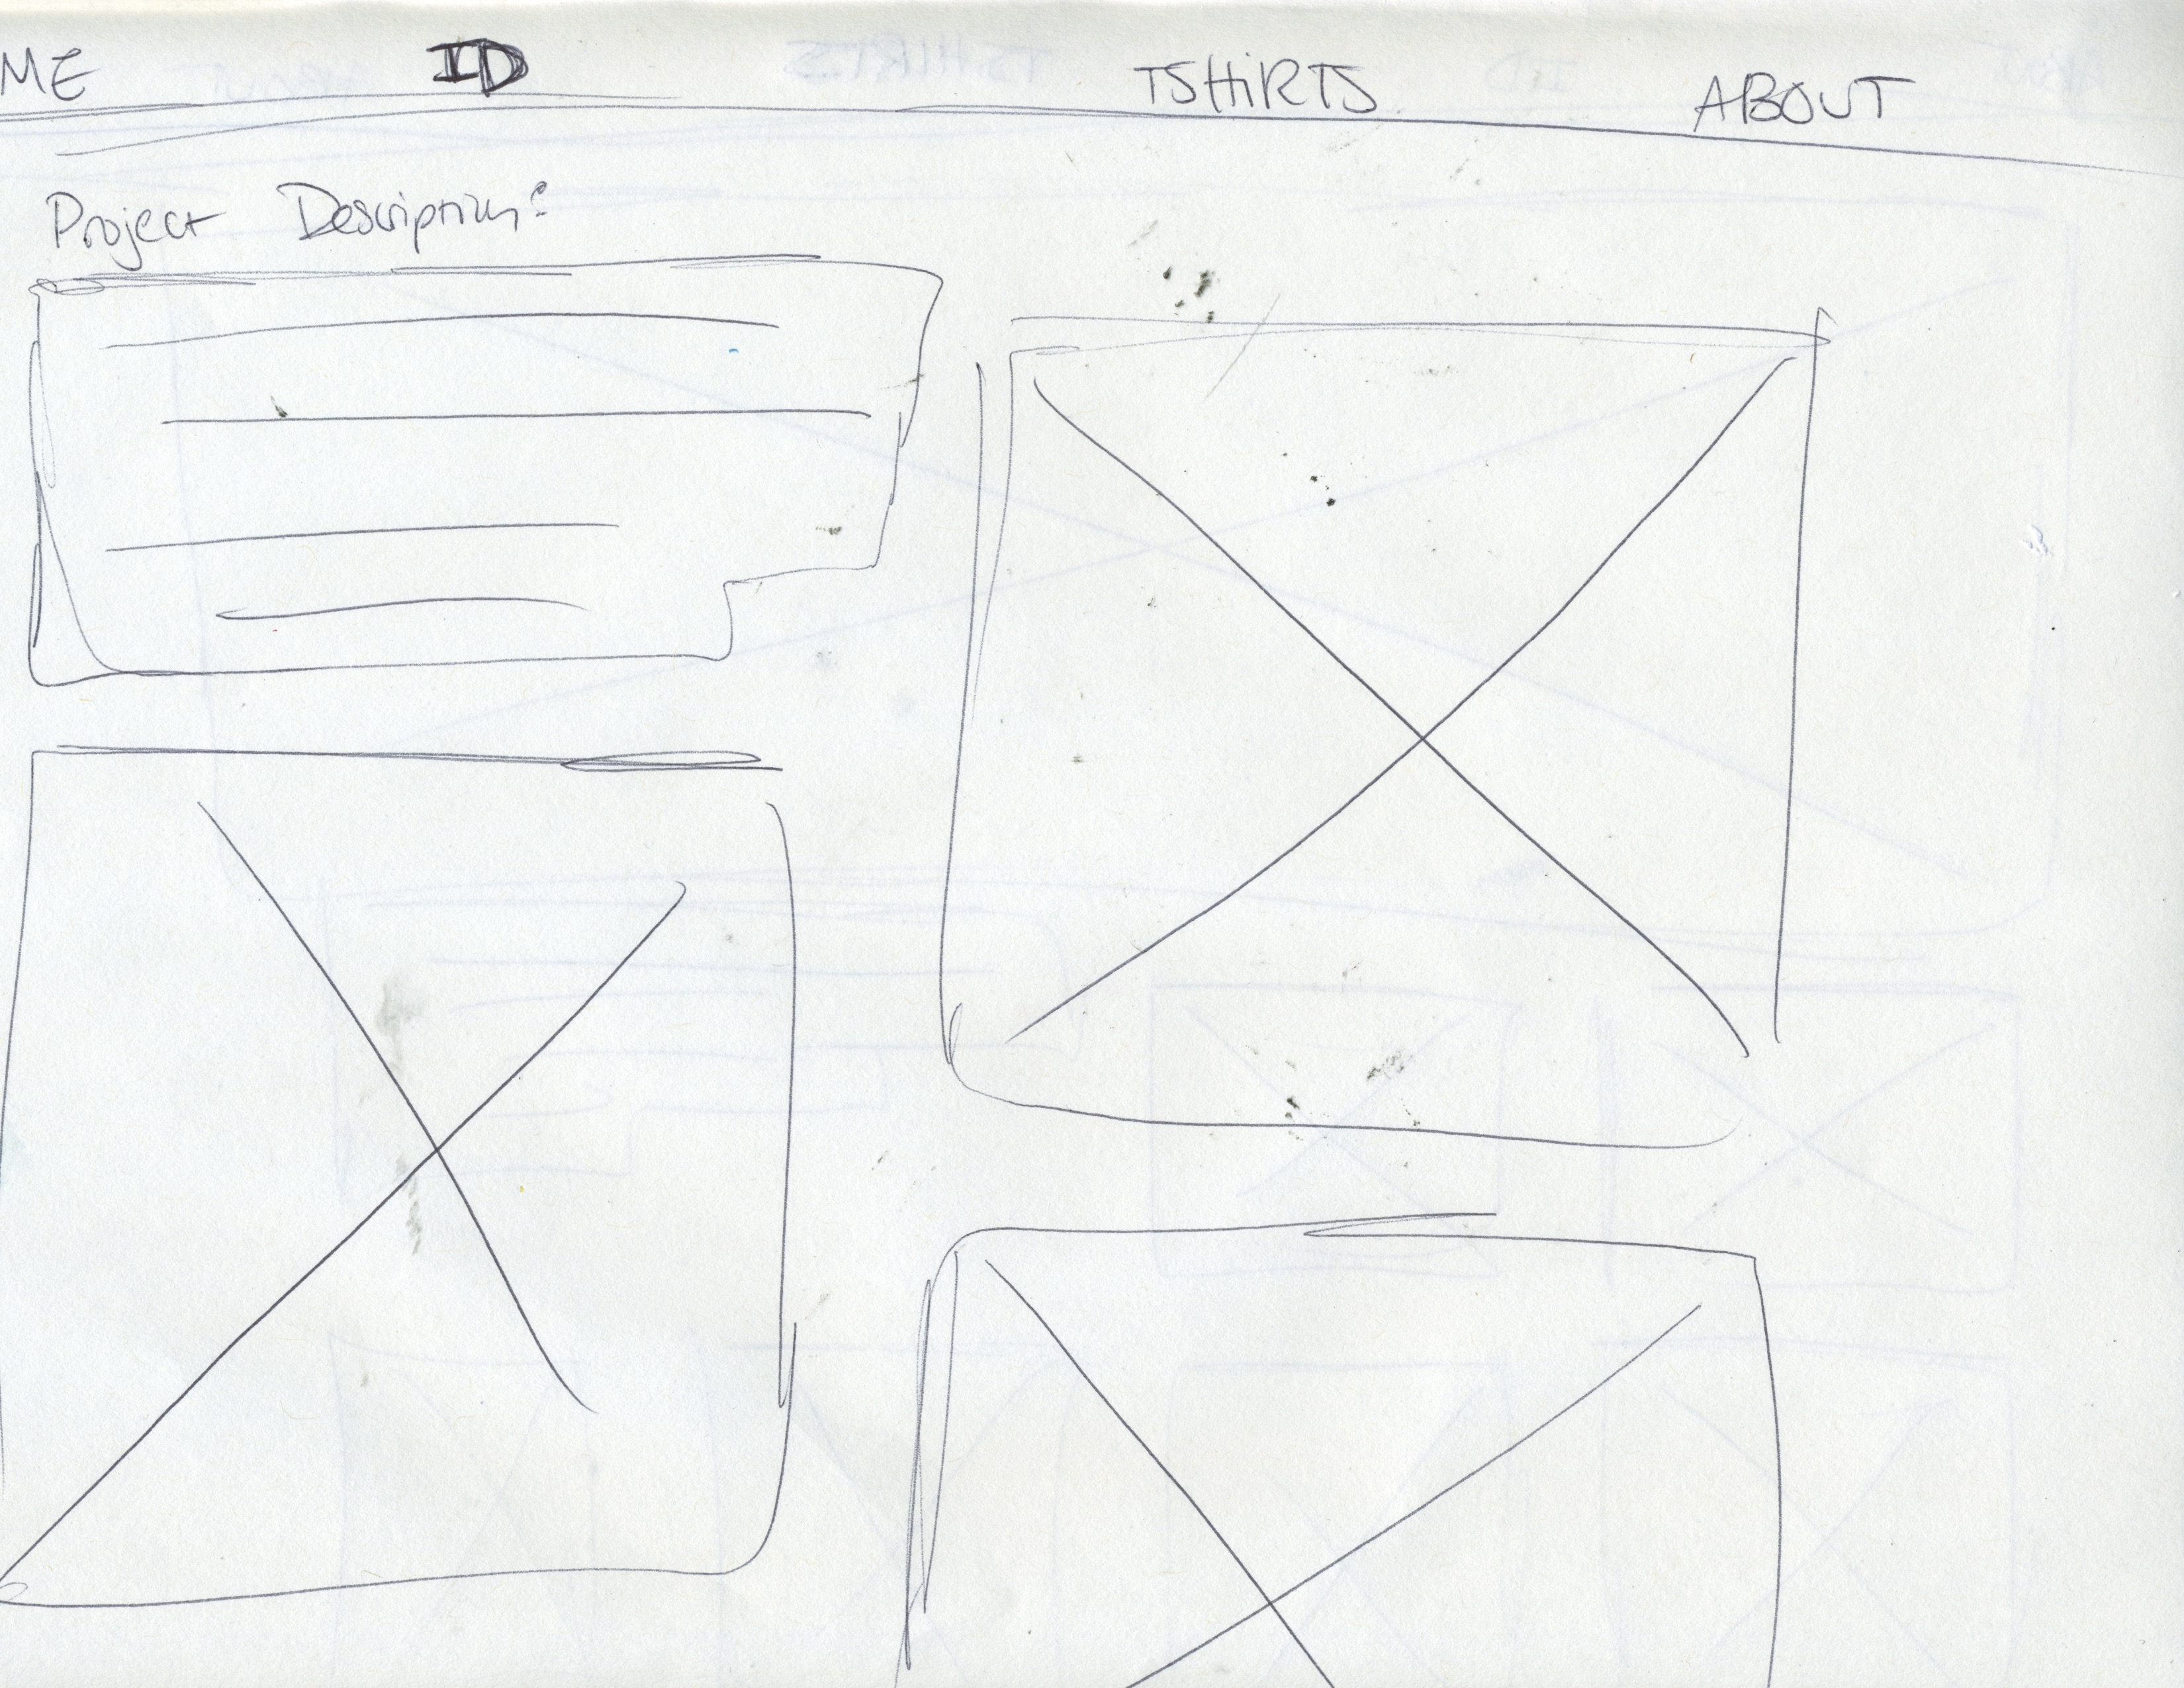 ME ID TSHiRTS ABOUT
Project Description: